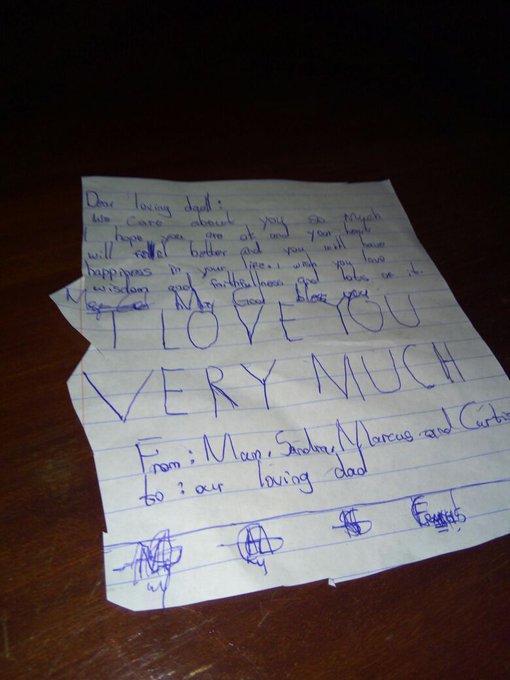 Dear loving dad:
We care about you so much
I hope you are ok and your heart
will feel better and you will have
happiness in your life. I wish you love
wisdom and faithfullness and lots of it.
May God bless you
I LOVE YOU
VERY MUCH
From: Mum, Sandra, Marcus and Curtis
to: our loving dad